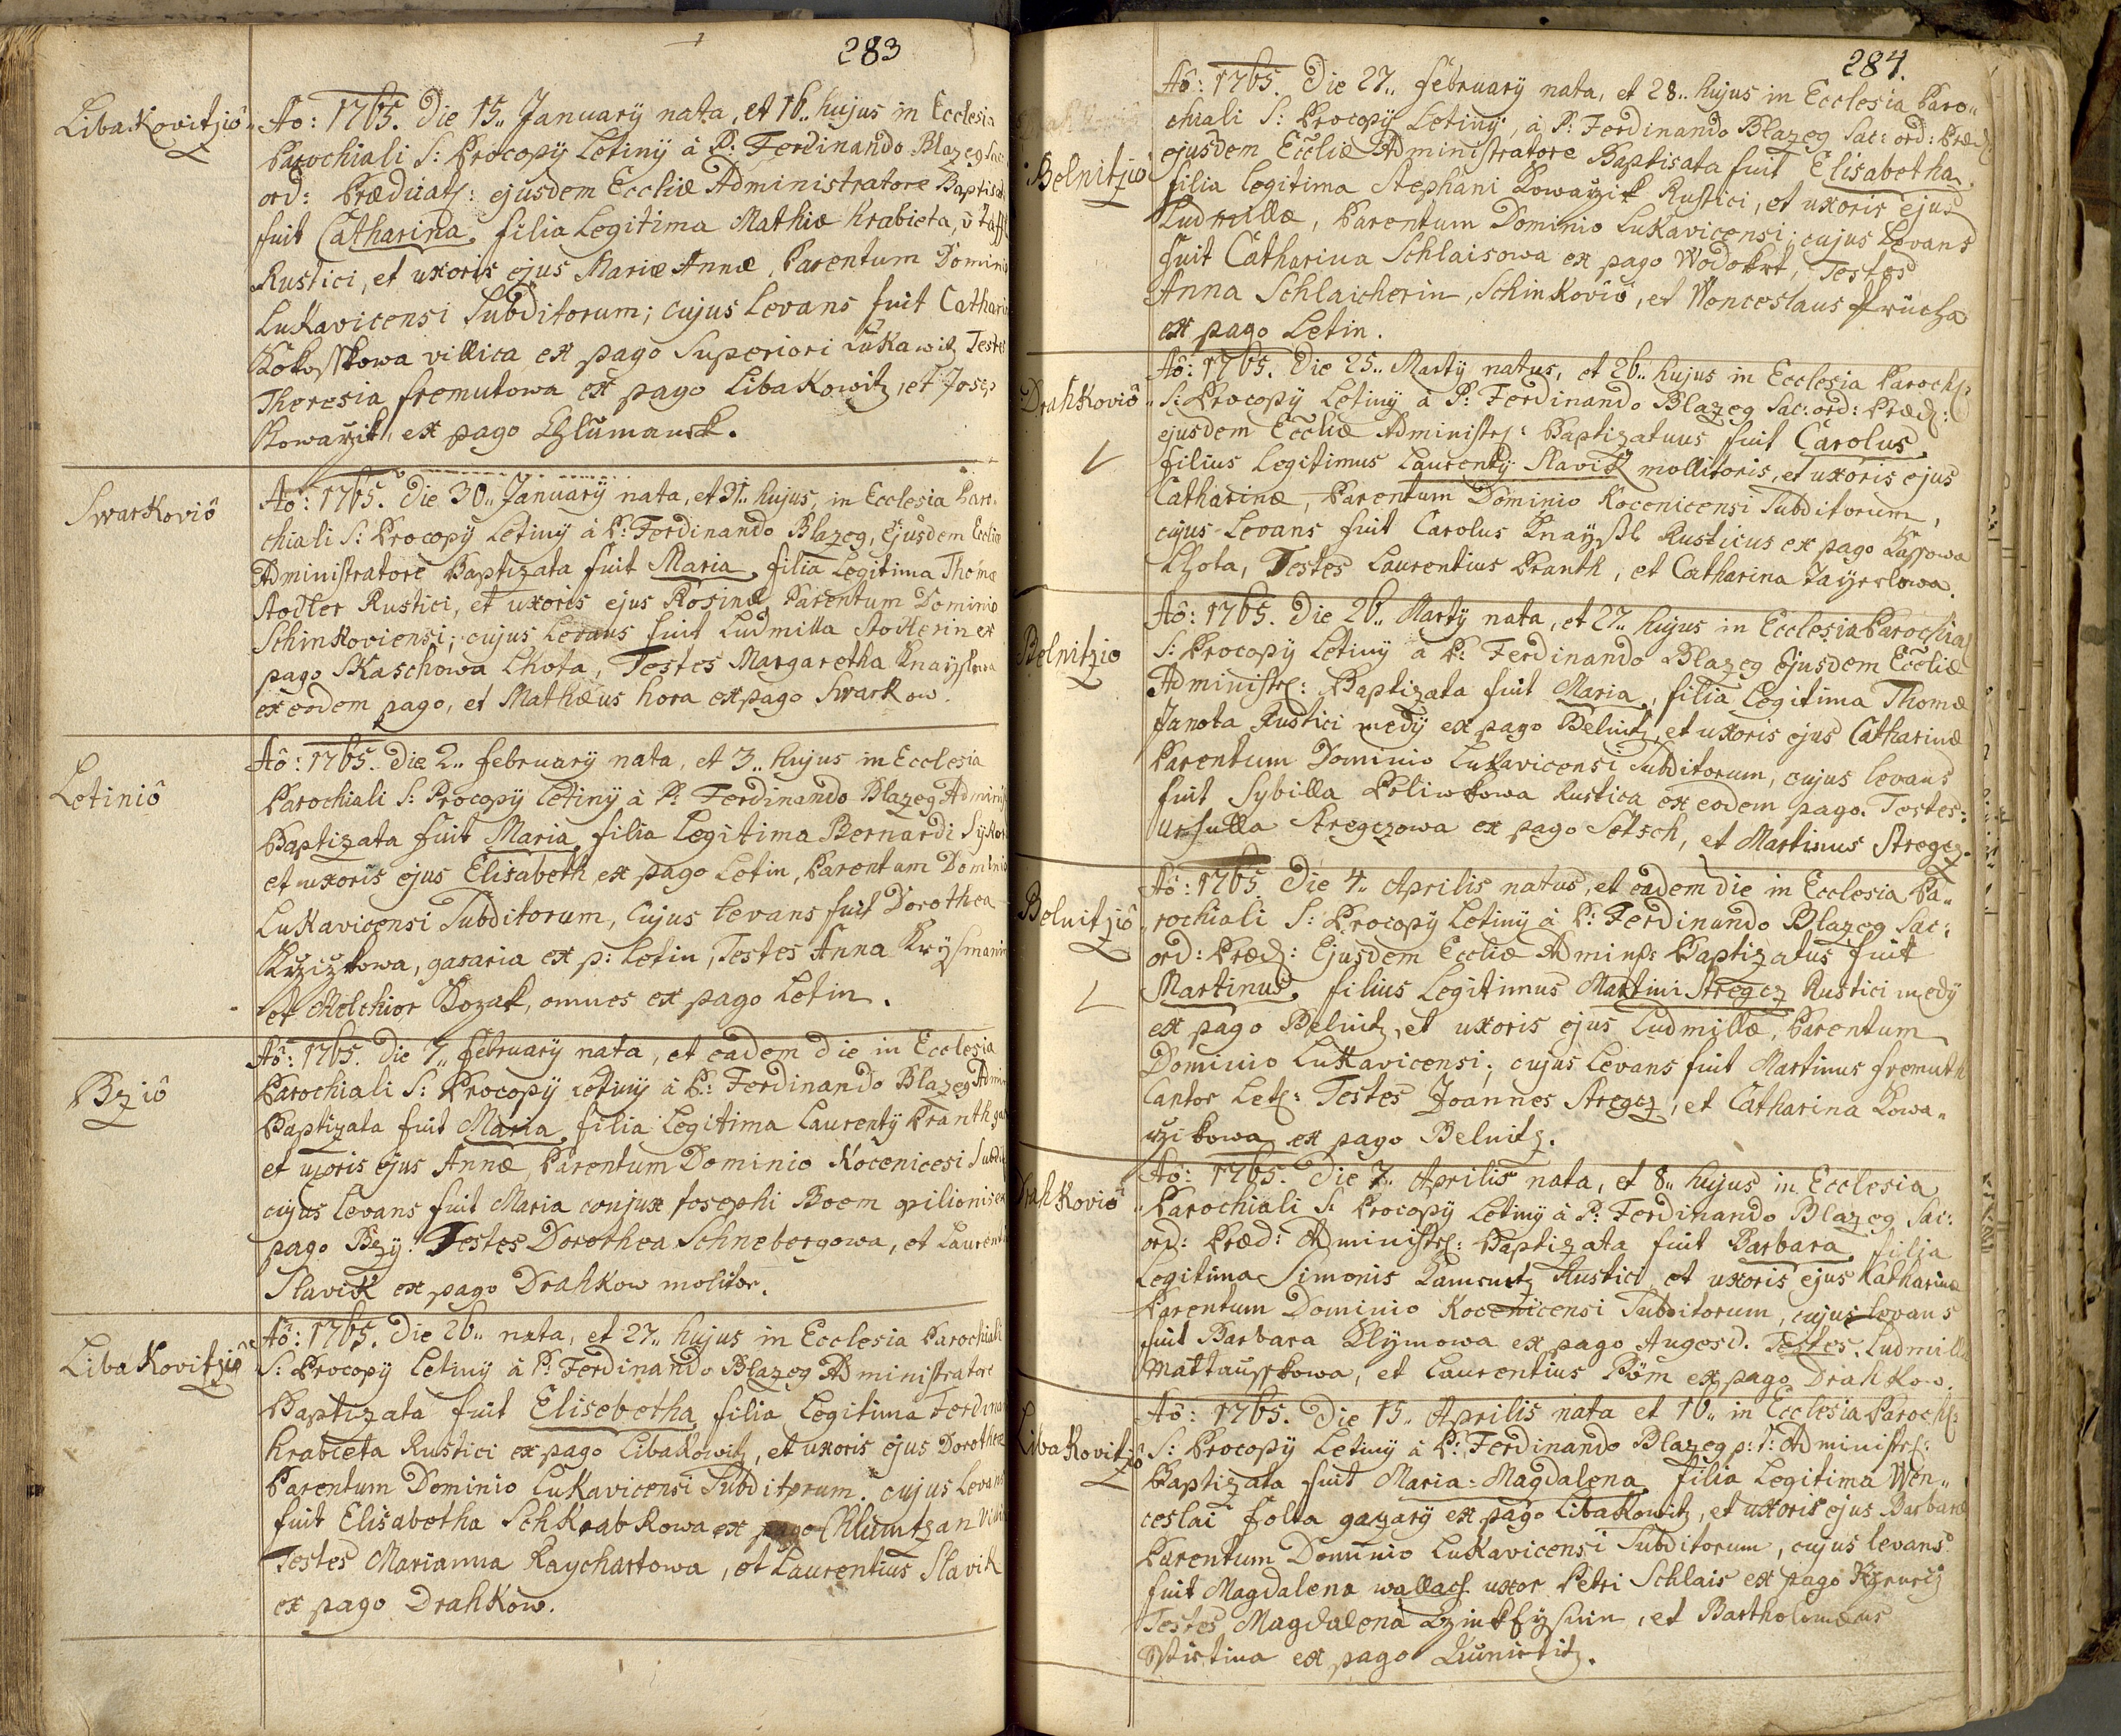 283
LibaKovitziô
Aô: 1765. Die 15.. Januarÿ nata, et 16.. hujus in Ecclesia
Parochiali S: Procopÿ Letinÿ à P: Ferdinando Blazeg Sac:
ord: Prædicat: ejusdem Eccliæ Administratore Baptisata
fuit Catharina, filia Legitima Mathiæ Krabieta,
Rustici, et uxoris ejus Mariæ Annæ, Parentum Dominio
LuKavicensi Subditorum; cujus Levans fuit Catharin
Kokosskowa villica ex pago Superiori LuKawitz Testes
Theresia fremutowa ex pago LibaKowitz, et Josep
Kowarzik, ex pago Chlumansk.
SwarKoviô
Aô: 1765. Die 30.. Januarÿ nata, et 31.. hujus, in Ecclesia Paro-
chiali S: Procopÿ Letinÿ à P: Ferdinando Blazeg, Ejusdem Eccliæ
Administratore Baptizata fuit Maria, filia Legitima Thomæ
Stodler Rustici, et uxoris ejus Rosinæ, Parentum Dominio
SchinKoviensi; cujus Levans fuit Ludmilla Stodlerin ex
pago SKaschowa Lhota, Testes Margaretha Knaÿslowa
ex eodem pago, et Mathæus hora ex pago SwarKow.
Letiniô
Aô: 1765. Die 2.. februarÿ nata, et 3.. hujus in Ecclesia
Parochiali S: Procopÿ Letinÿ à P: Ferdinando Blazeg Admini
Baptizata fuit Maria, filia Legitima Bernardi SÿKor
et uxoris ejus Elisabeth, ex pago Letin, Parentum Dominio
LuKavicensi Subditorum, Cujus Levans fuit Dorothea
Krzizkowa, gazaria ex p: Letin, Testes Anna
et Melchior Kozak, omnes ex pago Letin.
Bziô
Aô: 1765. Die 7.. februarÿ nata, et eadem die in Ecclesia
Parochiali S: Procopÿ Letinÿ à P: Ferdinando Blazeg Admin
Baptizata fuit Maria, filia Legitima Laurentÿ Pranth
et uxoris ejus Annæ, Parentum Dominio Kocenicesi Subdit
cujus Levans fuit Maria conjux Josephi Boem opilionis ex
pago Bzÿ: Testes Dorothea Schnebergowa, et Laurenti
Slavik ex pago DrahKow molitor.
LibaKovitziô
Aô: 1765. Die 26.. nata, et 27.. hujus in Ecclesia Parochiali
S: Procopÿ Letinÿ à P: Ferdinando Blazeg Administratore
Baptizata fuit Elisebetha, filia Legitima Ferdinan
Krabieta Rustici ex pago LibaKowitz, et uxoris ejus Dorotheæ
Parentum Dominio LuKavicensi Subditorum. cujus Levans
fuit Elisabetha SchKrabKowa ex pago Chlumtzan
Testes Marianna Raychartowa, et Laurentius SlaviK
ex pago DrahKow.
284.
Belnitziô
Aô: 1765. Die 27.. februarÿ nata, et 28.. hujus in Ecclesia Paro-
chiali S: Procopÿ Letinÿ, à P: Ferdinando Blazeg Sac: ord: Præd:
ejusdem Eccliæ Administratore Baptisata fuit Elisabetha,
filia Legitima Stephani Kowarzik Rustici, et uxoris ejus
Ludmillæ, Parentum Dominio LuKavicensi; cujus Levans
fuit Catharina Schlaisowa ex pago Wodokrt, Testes
Anna Schlaicherin, SchinKoviô, et Wenceslaus
ex pago Letin.
DrahKoviô
Aô: 1765. Die 25.. Martÿ natus, et 26.. hujus in Ecclesia Paroch:
S: Procopÿ Letinÿ à P: Ferdinando Blazeg Sac: ord: Præd:
ejusdem Eccliæ Administ: Baptizatus fuit Carolus,
filius Legitimus Laurentÿ SlaviK mollitoris, et uxoris ejus
Catharinæ, Parentum Dominio Kocenicensi Subditorum,
cujus Levans fuit Carolus Knaÿsl Rusticus ex pago Kassowa
Lhota, Testes Laurentius Pranth, et Catharina Taÿerlowa.
Belnitziô
Aô: 1765. Die 26.. Martÿ nata, et 27.. hujus in Ecclesia Parochial
S: Procopÿ Letinÿ à P: Ferdinando Blazeg Ejusdem Eccliæ
Administ: Baptizata fuit Maria, filia Legitima Thomæ
Janota Rustici medÿ ex pago Belnitz, et uxoris ejus Catharinæ
Parentum Dominio LuKavicensi Subditorum, cujus levans
fuit Sybilla Poliwkowa Rustica ex eodem pago. Testes:
Ursulla Stregczowa ex pago Setsch, et Martinus Stregcz.
Belnitziô
Aô: 1765. Die 4.. Aprilis natus, et eadem die in Ecclesia Pa-
rochiali S: Procopÿ Letinÿ à P: Ferdinando Blazeg Sac:
ord: Præd: Ejusdem Eccliæ Admins: Baptizatus fuit
Martinus, filius Legitimus Martini Stregcz Rustici medÿ
ex pago Belnitz, et uxoris ejus Ludmillæ, Parentum
Dominio LuKavicensi; cujus Levans fuit Martinus fremuth
Cantor Let: Testes Joannes Stregcz, et Catharina Kowa-
rzikowa ex pago Belnitz.
DrahKoviô
Aô: 1765. Die 7.. Aprilis nata, et 8.. hujus in Ecclesia
Parochiali S: Procopÿ Letinÿ à P: Ferdinando Blazeg Sac:
ord: Præd: Administ: Baptizata fuit Barbara, filia
Legitima Simonis Rustici, et uxoris ejus Katharinæ
Parentum Dominio Kocenicensi Subditorum, cujus Levans
fuit Barbara Klÿmowa ex pago Augesd. Testes Ludmilla
Mattausskowa, et Laurentius Pöm ex pago DrahKow.
LibaKovitziô
Aô: 1765. Die 15.. Aprilis nata et 16.. in Ecclesia Paroch:
S: Procopÿ Letinÿ à P: Ferdinando Blazeg p: t: Administ:
Baptizata fuit Maria-Magdalena, filia Legitima Wen-
ceslai folta gazarÿ ex pago LibaKowitz, et uxoris ejus Barbaræ
Parentum Dominio LuKavicensi Subditorum, cujus levans
fuit Magdalena uxor Petri Schlais ex pago
Testes Magdalena, et Bartholomæus
ex pago